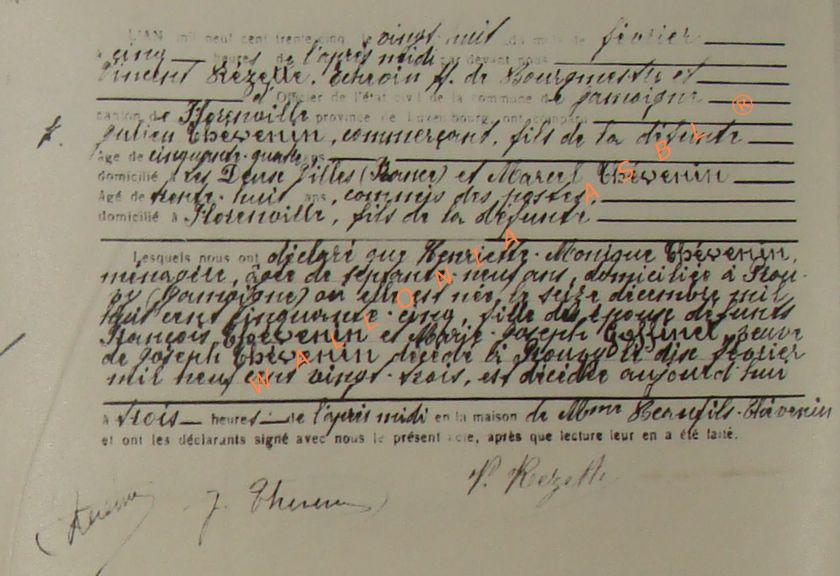 L'AN mil neuf cent trente-cinq le vingt-huit du mois de février
à cinq heures de l'après midi par devant nous
Vincent Rezette, Echevin ff. de Bourgmestre et
Officier de l'état civil de la commune de Jamoigne
canton de Florenville province de Luxembourg, ont comparu
Julien Thévenin, commerçant, fils de la défunte
âgé de cinquante-quatre ans
domicilié à Les Deux Villes (France) et Marcel Thévenin
âgé de trente-huit ans, commis des postes
domicilié à Florenville, fils de la défunte
Lesquels nous ont déclaré que Henriette-Monique Thévenin,
ménagère, âgée de septante-neuf ans, domiciliée à Prou-
vy (Jamoigne) où elle est née, le seize décembre mil
huit cent cinquante-cinq, fille des époux défunts
François Thévenin et Marie-Joseph Goffinet, veuve
de Joseph Thévenin décédé à Prouvy le dix février
mil neuf cent vingt-trois, est décédée aujourd'hui
à trois heures de l'après midi en la maison de Mme Beaufils-Thévenin
et ont les déclarants signé avec nous le présent acte, après que lecture leur en a été faite.
Thévenin J. Thevenin V. Rezette
WALLONIA ASBL ®